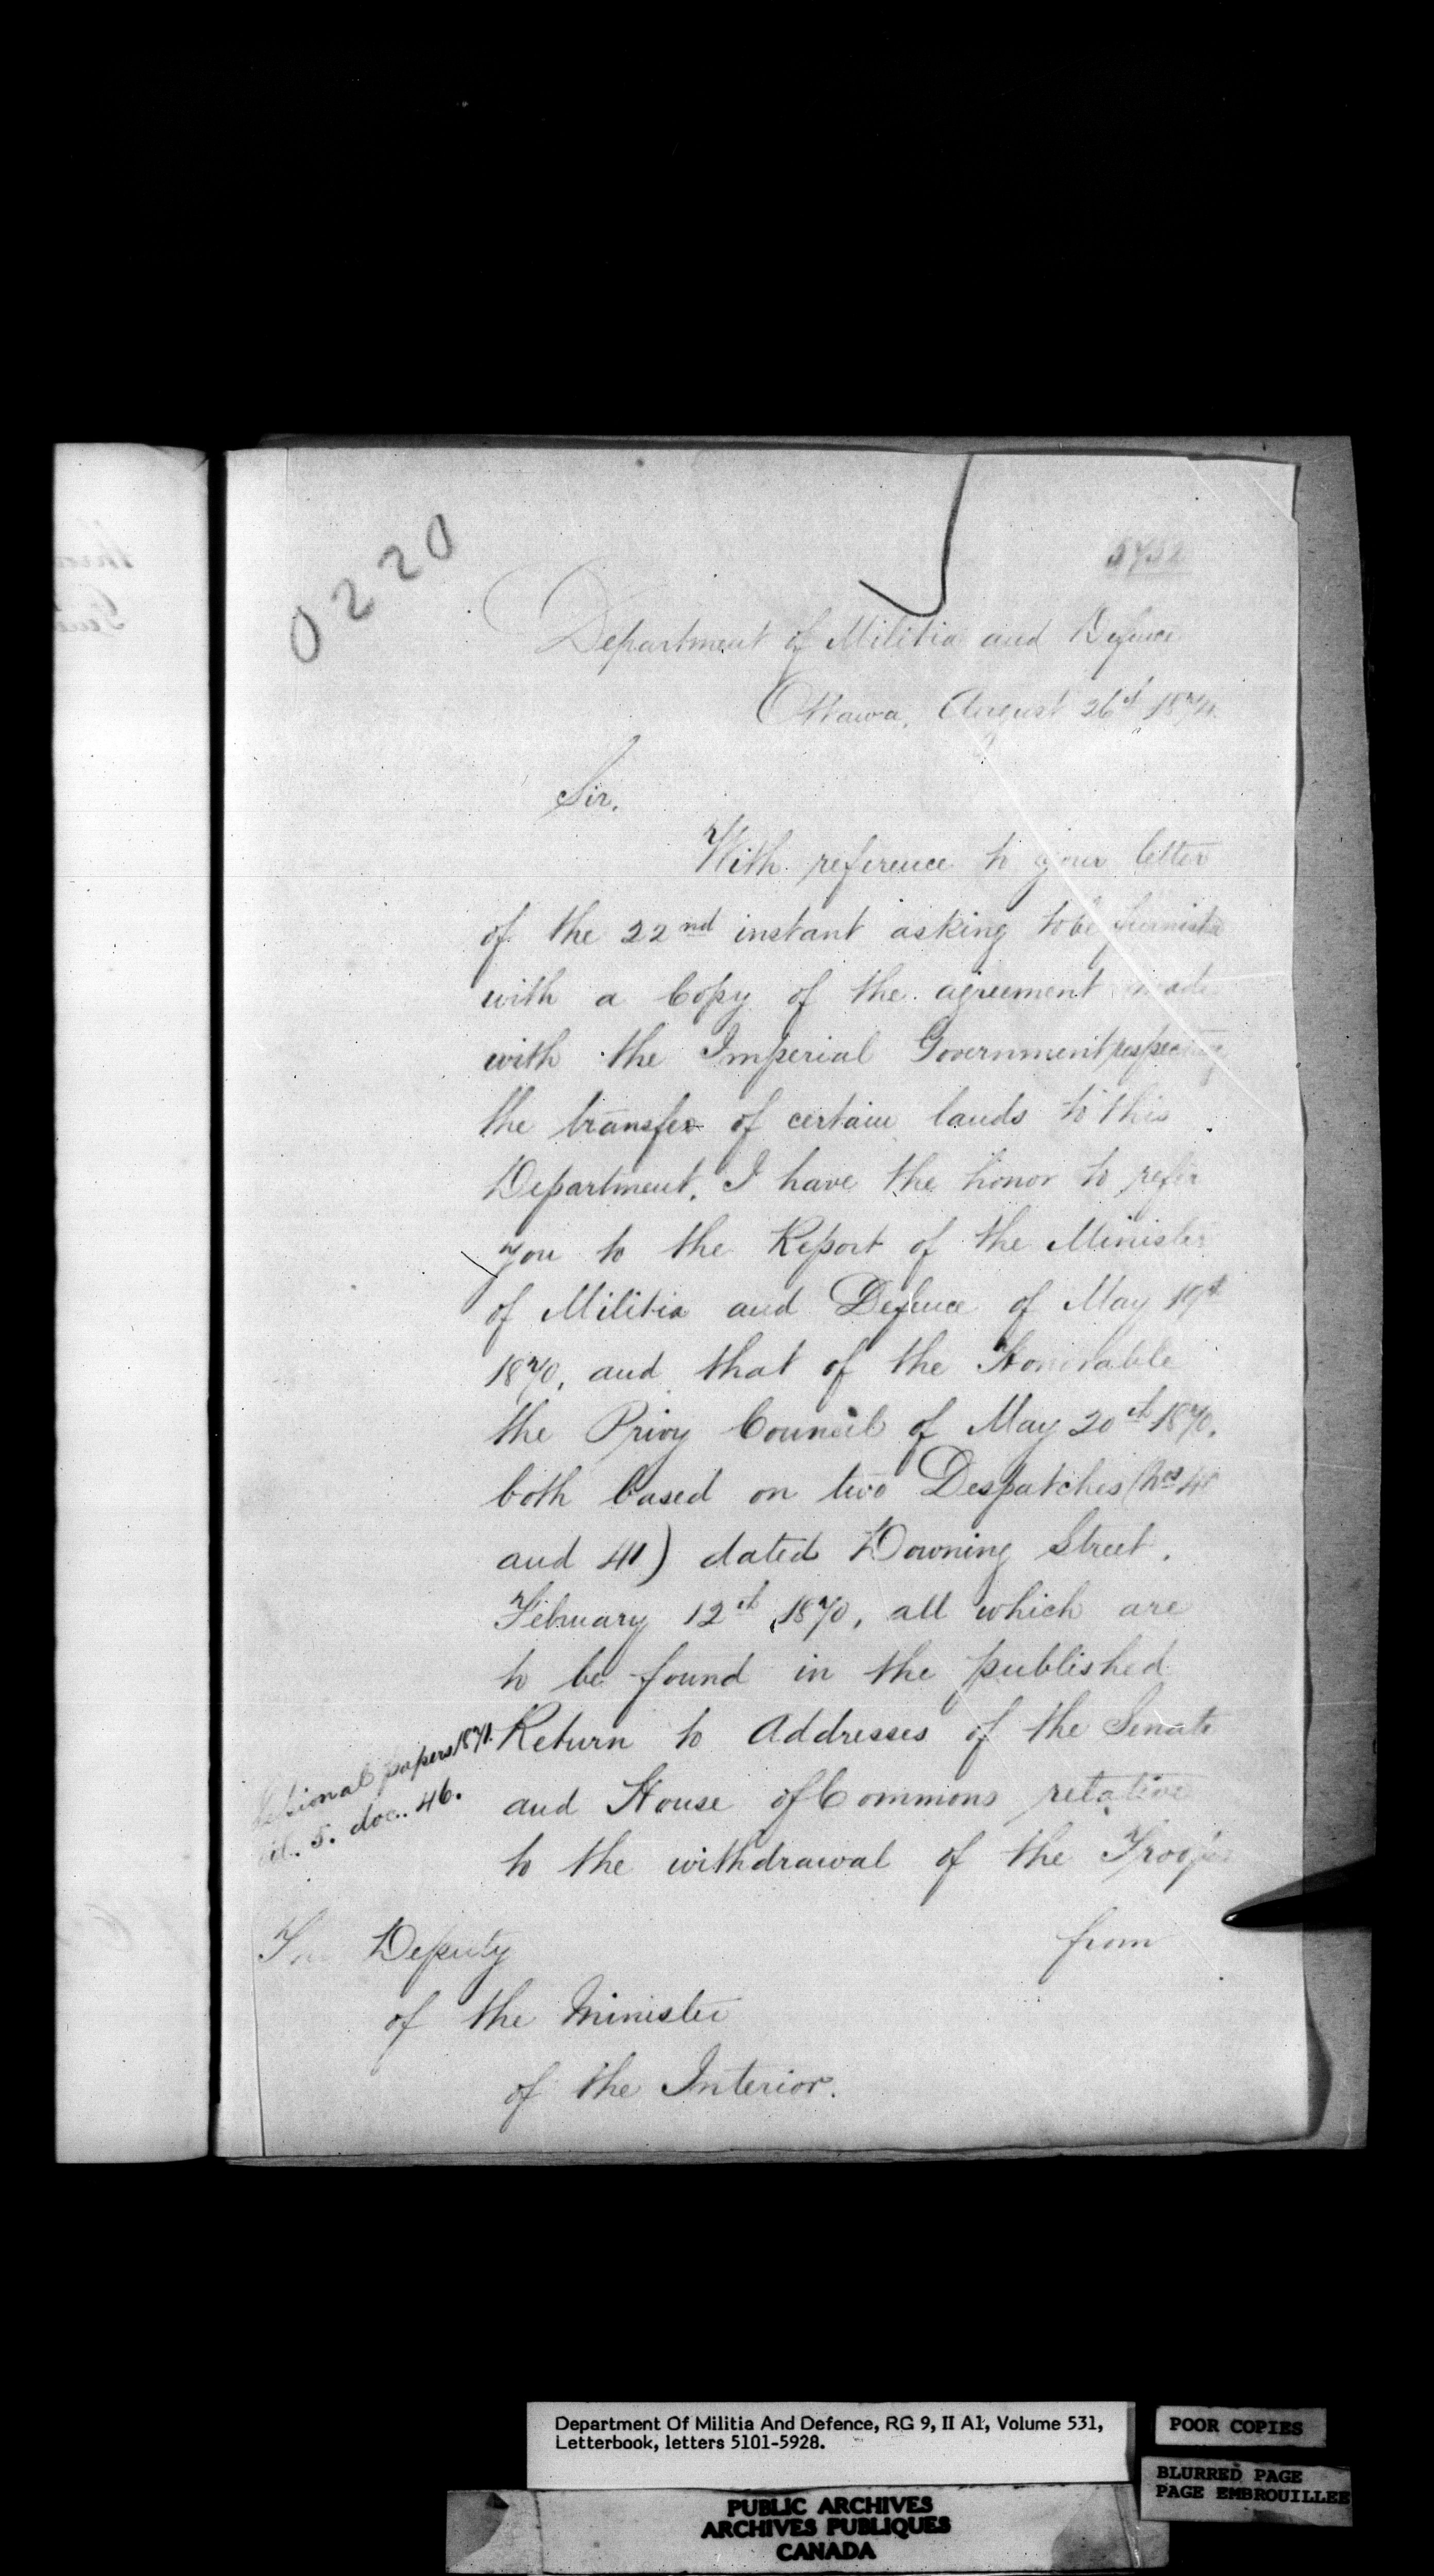 0220
5752
Department of Militia and Defence
Ottawa, August 26th 1874.
Sir,
With reference to your letter
of the 22nd instant asking to be furnished
with a Copy of the agreement made
with the Imperial Government respecting
the transfer of certain lands to this
Department, I have the honor to refer
you to the Report of the Minister
of Militia and Defence of May 19th
1870, and that of the Honorable
the Privy Council of May 20th 1870,
both based on two Despatches (Nos 40
and 41) dated Downing Street,
February 12th, 1870, all which are
to be found in the published
Return to Addresses of the Senate
and House of Commons relative
to the withdrawal of the Troops
from
papers 1871.
5. doc. 46.
The Deputy
of the Minister
of the Interior.
Department Of Militia And Defence, RG 9, II A1, Volume 531,
Letterbook, letters 5101-5928.
POOR COPIES
BLURRED PAGE
PAGE EMBROUILLEE
PUBLIC ARCHIVES
ARCHIVES PUBLIQUES
CANADA